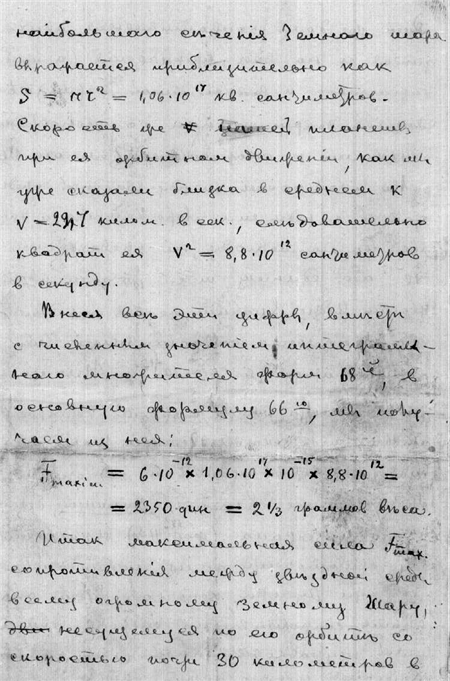 наибольшаго сѣченія Земного шара
выражается приблизительно как
S = πr² = 1,06·10¹⁷ кв. сантиметров.
Скорость же нашей планеты
при ея орбитном движеніи, как мы
уже сказали близка в среднем к
V = 29,7 килом. в сек., слѣдовательно
квадрат ея V² = 8,8·10¹² сантиметров
в секунду.
Внеся всѣ эти цифры, вмѣстѣ
с численным значеніем интеграль-
наго множителя форм 68ой, в
основную формулу 66ю, мы полу-
чаем из нея:
Fmaxim. = 6·10⁻¹² × 1,06·10¹⁷ × 10⁻¹⁵ × 8,8·10¹² =
= 2350 дин = 2 1/3 граммов вѣса.
Итак максимальная сила Fmax.
сопротивленія междузвѣздной среды
всему огромному Земному Шару,
несущемуся по его орбитѣ со
скоростью почти 30 километров в